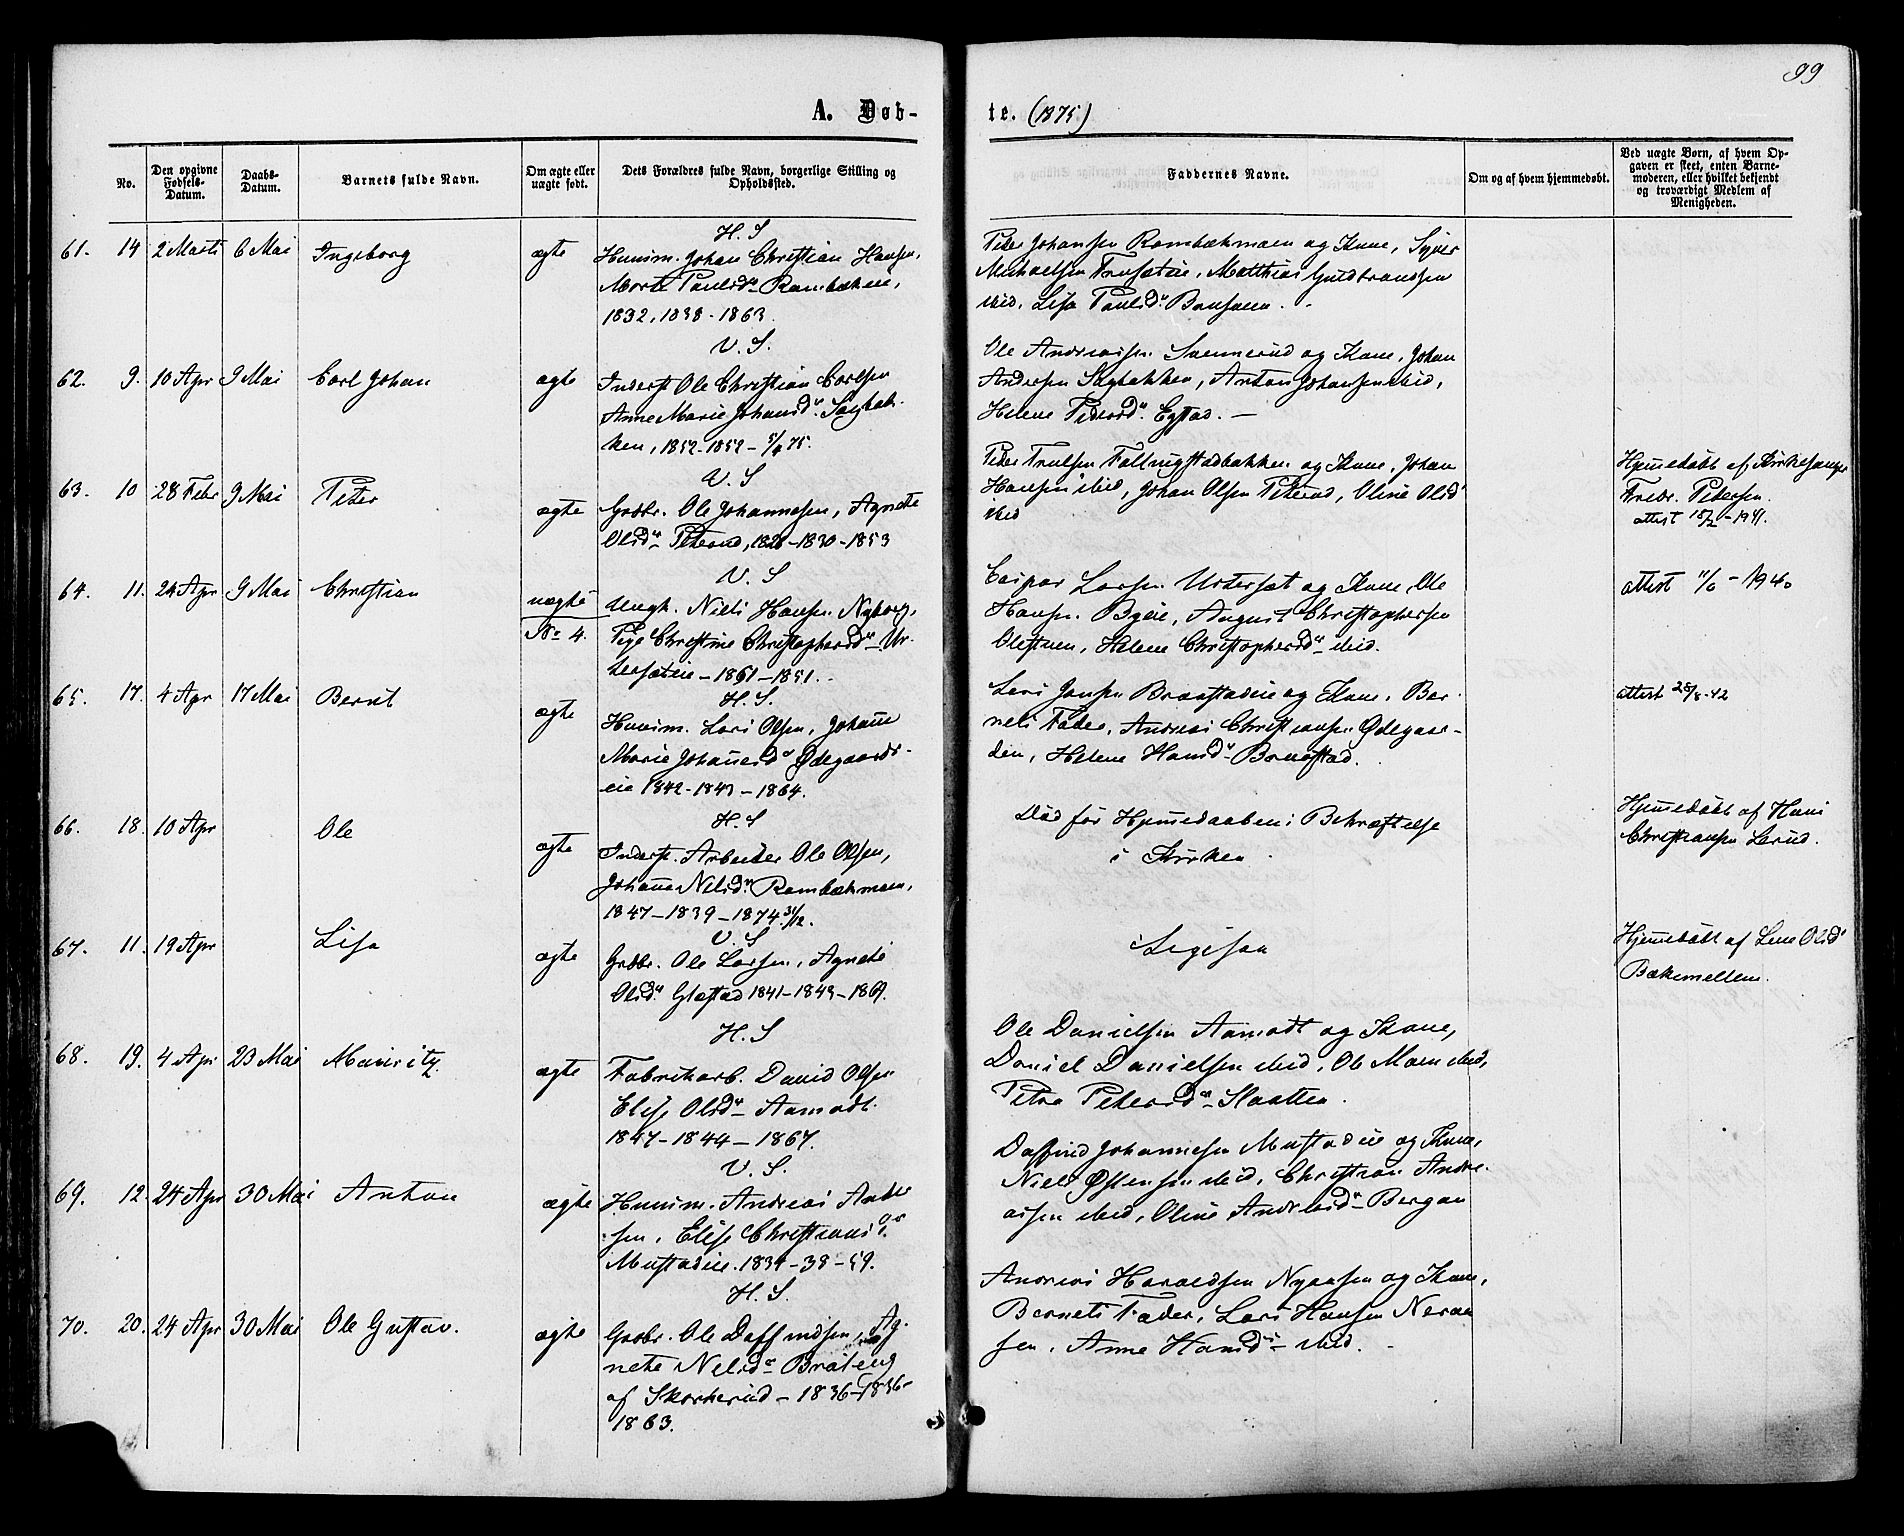 99
A. Døb-
te. (1875)
No.
Den opgivne Fødsels-Datum.
Daabs-Datum.
Barnets fulde Navn.
Om ægte eller uægte født.
Dets Forældres fulde Navn, borgerlige Stilling og Opholdssted.
Faddernes Navne.
Om og af hvem hjemmedøbt.
Ved uægte Børn, af hvem Opgaven er skeet, enten Barnemoderen, eller hvilket bekjendt og troværdigt Medlem af Menigheden.
H. S
61. 14 2 Marts 6 Mai Ingeborg ægte
Huusm. Johan Christian Hansen,
Marte Paulsdr. Rambækeie,
1832, 1838 - 1863.
Peder Johansen Rambækmoen og Kone, Syver
Michaelsen Frusæteie, Matthias Guldbrandsen
ibid, Lisa Paulsdr.
V. S.
62. 9. 10 Apr 9 Mai Carl Johan ægte
Inderst Ole Christian Carlsen
Anne Marie Johansdr. Sagbak-
ken, 1852 - 1852 - 75.
Ole Andreassen Svennerud og Kone, Johan
Andersen Sagbakken, Anton Johansen ibid,
Helene Pedersdr. Egstad. —
V. S
63. 10 28 Febr 9 Mai Peter ægte
Grdbr. Ole Johannesen, Agnete
Olsdr. Peterud, 1828 - 1830 - 1853
Peder Trulsen Fallingstadbakken og Kone, Johan
Hansen ibid, Johan Olsen Peterud, Oline Olsdr
ibid
Hjemedøbt af Kirkesanger
Fredr. Pedersen.
attest 18/2 - 1941.
V. S
64. 11. 24 Apr 9 Mai Christian uægte
No 4.
Ungk. Niels Hansen Nyborg,
Pige Christine Christophersdr. Ur-
tersæteie - 1851 - 1851.
Caspar Larsen Urtersæt og Kone, Ole
Hansen Byeie, August Christophersen
Olestuen, Helene Christophersdr ibid.
attest 11/6 - 1940
H. S.
65. 17. 4 Apr 17 Mai Bernt ægte
Huusm. Lars Olsen, Johanne
Marie Johannesdr Ødegaards-
eie 1842 - 1843 - 1864.
Lars Jensen Braastadeie og Kone, Bar-
nets Fader, Andreas Christiansen Ødegaar-
den, Helene Hansdr. Braastad.
attest 28/8 - 42
H. S
66. 18. 10 Apr Ole ægte
Inderst. Arbeider Ole Olsen,
Johanne Nilsdr. Rambækmoen,
1847 - 1839 - 1874 31/12.
Død før Hjemedaabens Bekræftelse
i Kirken.
Hjemedøbt af Hans
Christiansen Lerud.
V. S
67. 11. 19 Apr Lisa ægte
Grdbr. Ole Larsen, Agnete
Olsdr. Glæstad 1841 - 1843 - 186
Ligesaa
Hjemedøbt af Lene Olsdr
Bækemellem.
H. S
68. 19. 4 Apr 23 Mai Mauritz ægte
Fabrikarb. David Olsen
Elise Olsdr. Aamodt.
1847 - 1844 - 1867.
Ole Danielsen Aamodt og Kone,
Daniel Danielsen ibid, Ole Moen ibid,
Petra Petersdr. Slaatten.
V. S.
69. 12. 24 Apr 30 Mai Anton ægte
Huusm. Andreas Ander
sen, Elise Christiansdr.
Mustadeie. 1834 - 38 - 59.
Daffind Johannesen Mustadeie og Kone,
Niels Østensen ibid, Christian Andre-
assen ibid, Oline Andreasdr. Bergan
H. S.
70. 20. 24 Apr 30 Mai Ole Gustav. ægte
Grdbr. Ole Daffindsen, Ag-
nete Nilsdr Bråteng
af Skonkerud - 1836 - 1836 -
1863.
Andreas Haraldsen Nyaasen og Kone,
Barnets Fader, Lars Hansen Neraa
sen, Anne Hansdr. ibid.